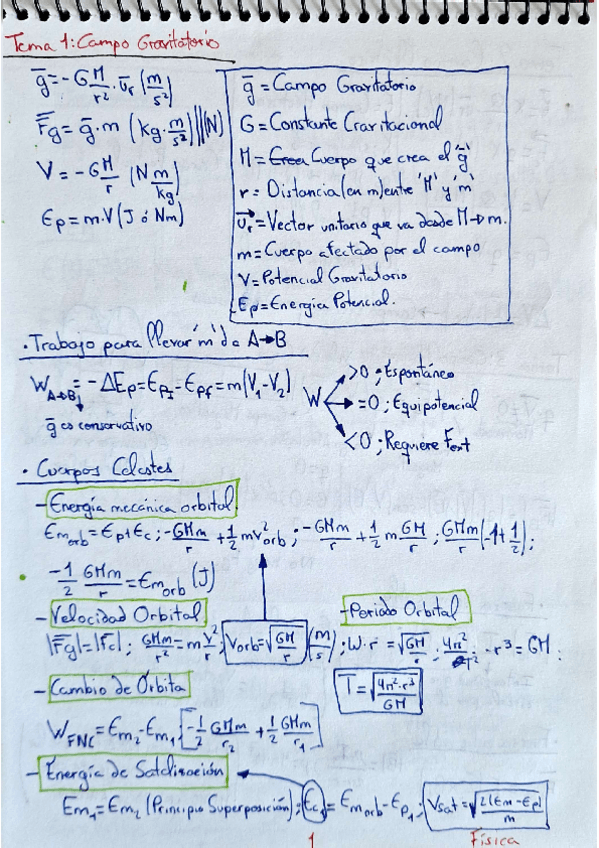 Tema 1: Campo Gravitatorio
g = -G M/r² · u_r (m/s²)
F_g = g · m (kg · m/s²) || (N)
V = -G M/r (N m/kg)
Ep = m · V (J ó Nm)
g = Campo Gravitatorio
G = Constante Gravitacional
M = Crea Cuerpo que crea el g
r = Distancia (en m) entre 'M' y 'm'
u_r = Vector unitario que va desde M → m.
m = Cuerpo afectado por el campo
V = Potencial Gravitatorio
Ep = Energía Potencial.
· Trabajo para llevar 'm' de A → B
W_A→B = -ΔEp = Ep_I - Ep_f = m(V₁ - V₂)
g es conservativo
W
>0 ; Espontáneo
=0 ; Equipotencial
<0 ; Requiere Fext
· Cuerpos Celestes
- Energía mecánica orbital
Em_orb = Ep + Ec ; -GMm/r + 1/2 mv²_orb ; -GMm/r + 1/2 m GM/r ; GMm/r (-1 + 1/2) ;
-1/2 GMm/r = Em_orb (J)
- Velocidad Orbital
|F_g| = |F_c| ; GMm/r² = m v²/r ; V_orb = √(GM/r) (m/s)
- Periodo Orbital
; W · r = √(GM/r) ; 4π²/T² · r³ = GM ;
T = √(4π² · r³/GM)
- Cambio de Órbita
W_FNC = Em₂ - Em₁ [-1/2 GMm/r₂ + 1/2 GMm/r₁]
- Energía de Satelización
Em₁ = Em₂ (Principio Superposición) ; Ec₁ = Em_orb - Ep₁ ; V_sat = √(2(Em - Ep)/m)
1
Física